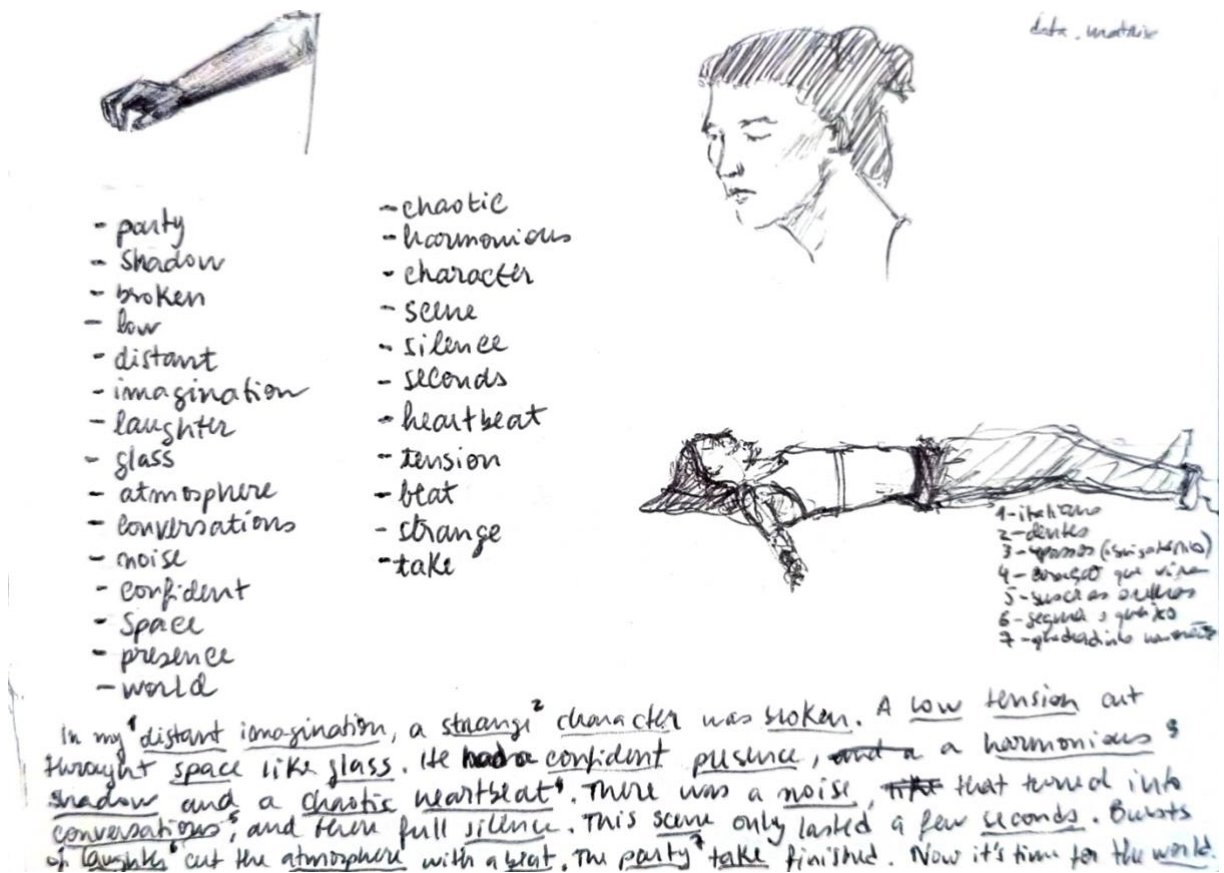 data.
- party
- shadow
- broken
- low
- distant
- imagination
- laughter
- glass
- atmosphere
- conversations
- noise
- confident
- space
- presence
- world
- chaotic
- harmonious
- character
- scene
- silence
- seconds
- heartbeat
- tension
- beat
- strange
- take
1 - italiano
2 - dentes
3 -
4 - que
5 - orelhas
6 - segura o queixo
7 - quadradinho
In my 1 distant imagination, a strange 2 character was broken. A low tension cut
throught space like glass. He had a confident presence, and a a harmonious 3
shadow and a chaotic heartbeat 4. There was a noise, that turned into
conversations 5, and there full silence. This scene only lasted a few seconds. Bursts
of laughter 6 cut the atmosphere with a beat. The party 7 take finished. Now it's time for the world.